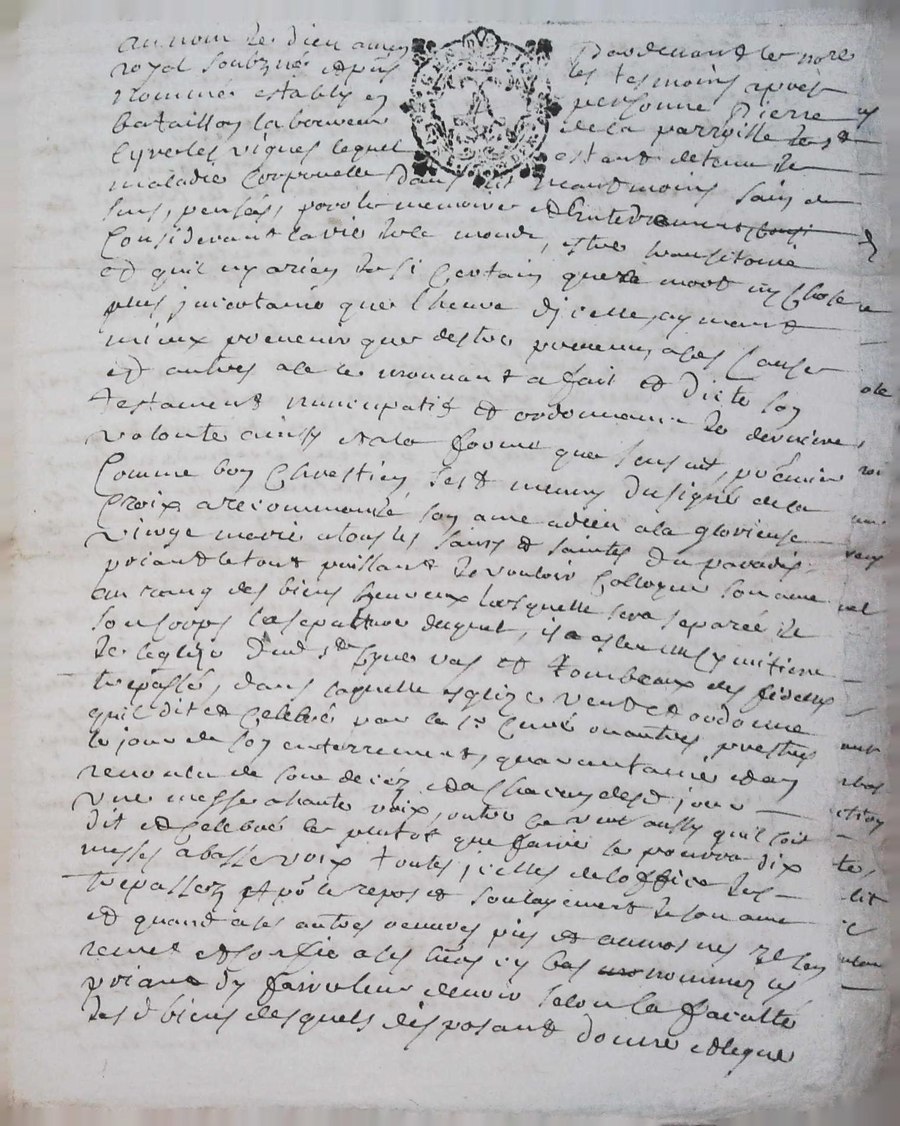 au nom de dieu amen Pardevant le nore
royal soubzné et puis les tesmoins après
nommés estably en personne Pierre
bataillon laboureur de la parroisse de st
Cyr les vignes lequel estant detenu de
maladie Corporelle dans lit neantmoins sain de
sens, pensée, parolle memoire et entendement
Considerant la vie de ce monde, estre transitoire
et quil ny a rien de si Certain que la mort ny Chose
plus jncertaine que lheure djcelle, aymant
mieux prevenir que destre prevenu, a ses Causes
et autres a ce le mouvant a fait et dicté son
testament nuncupatif et ordonnance de derniere
volonté ainsy et a la forme que sensuit, premier
Comme bon Chrestien sest muny du signe de la
Croix a recommandé son ame a dieu a la glorieuse
vierge marie a tous les saints et saintes du paradis
priant le tout puissant de vouloir Colloquer son ame
au rang des bien heureux lorsquelle sera separée de
son corps la sepulture duquel, il a esleue au cimitiere
de leglize dud st Cyr vas et tombeaux des fideux
trepassés, dans laquelle esglize veut et ordonne
quil dit et Celebré par le sr Curé ou autres prestres
le jour de son enterrement, quarantaine et an
revolu de son decéz et a chacun desd jours
une messe a haute voix, outre ce veut aussy quil soit
dit et Celebré le plutot que faire se pourra dix
messes a basse voix toutes jcelles de loffice des
trepassez et pr le repos et soulagement de son ame
et quand a ses autres oeuvres pies et aumosnes Il sen
remet et confie a ses heirs cy bas nommez les
priant dy faire leur devoir selon la faculté
des d biens desquels disposant donne et legue